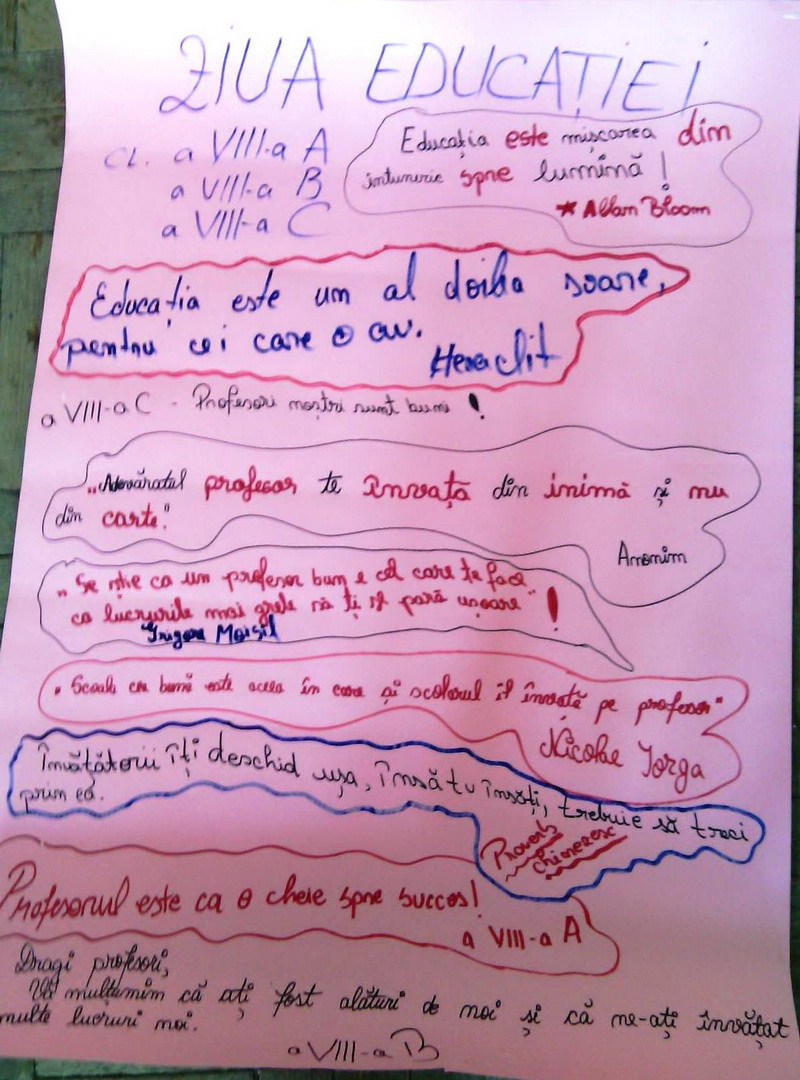 ZIUA EDUCAȚIEI
CL. a VIII-a A
a VIII-a B
a VIII-a C
Educația este mișcarea din
întuneric spre lumină!
* Allan Bloom
Educația este un al doilea soare,
pentru cei care o au.
Heraclit
a VIII-a C - Profesorii noștri sunt buni !
„Adevăratul profesor te învață din inimă și nu
din carte."
Anonim
„Se știe ca un profesor bun e cel care te face
ca lucrurile mai grele să ți se pară ușoare" !
Grigore Moisil
„Scoala cea bună este aceea în care și scolarul îl învață pe profesor"
Nicolae Iorga
Învățătorii îți deschid ușa, însă tu însoți, trebuie să treci
prin ea.
Proverb
chinezesc
Profesorul este ca o cheie spre succes!
a VIII-a A
Dragi profesori,
Vă multumim că ați fost alături de noi și că ne-ați învățat
multe lucruri noi.
a VIII-a B